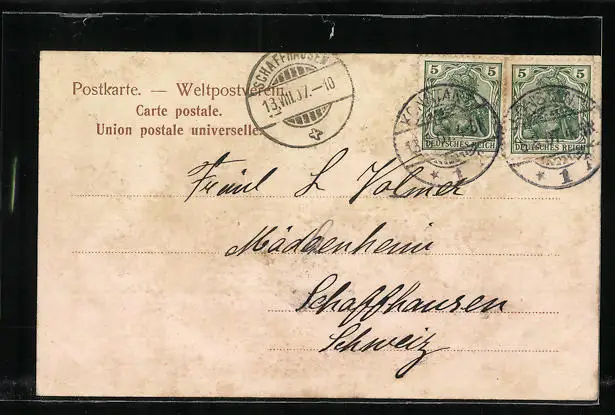 Postkarte. — Weltpostverein.
Carte postale.
Union postale universelle.
SCHAFFHAUSEN
13.VIII.07.–10
5 5
DEUTSCHES REICH
5 5
DEUTSCHES REICH
KONSTANZ
* 1
KONSTANZ
* 1
Fräul L Volmer
Mädchenheim
Schaffhausen
Schweiz